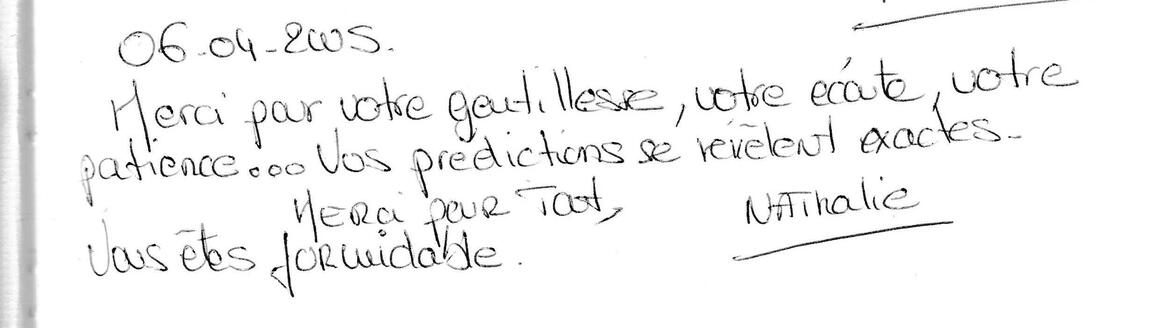 06-04-2005.
Merci par votre gentillesse, votre écoute, votre
patience... Vos predictions se révèlent exactes-
Merci pour Tout, NAThalie
Vous êtes formidable.